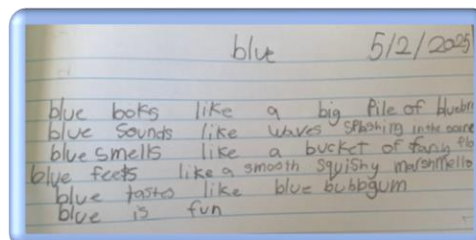 blue 5/2/2025
blue looks like a big Pile of
blue sounds like waves splashing in the
blue smells like a bucket of
blue feels like a smooth squishy marshmello
blue tastes like blue bubbgum
blue is fun